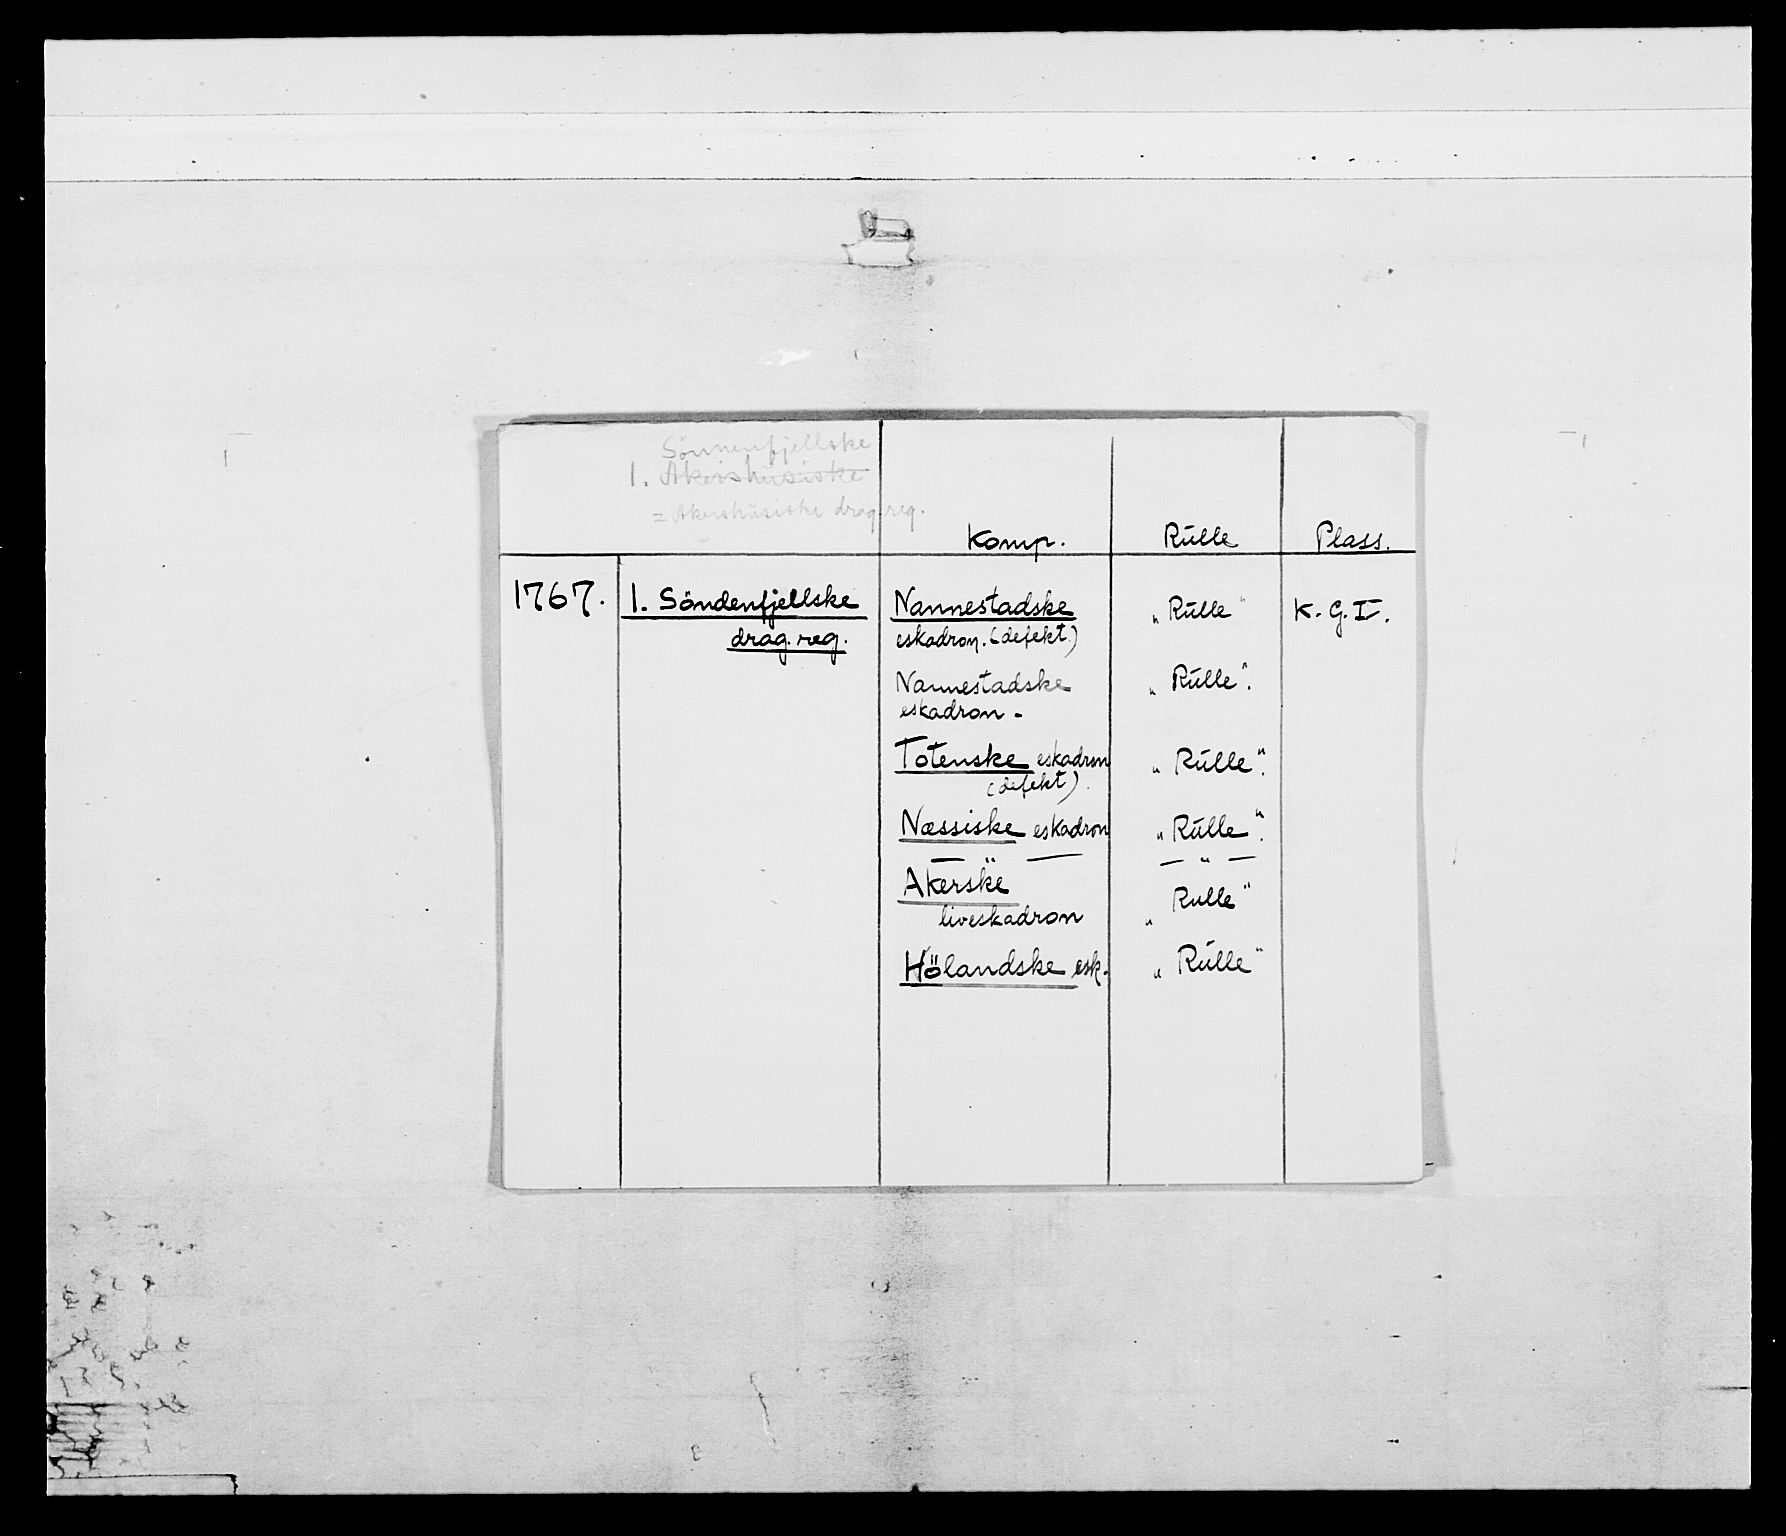 Sönnenfjellske
1. Akershusiske
= Akershusiske drag.reg.
Komp. Rulle Plass.
1767. 1. Söndenfjellske Nannestadske „Rulle“ K.G.I.
drag.reg. eskadron. (defekt)
Nannestadske „Rulle“.
eskadron.
Totenske eskadron „Rulle“.
(defekt).
Næssiske eskadron „Rulle“.
— „ — — „ —
Akerske „Rulle“
liveskadron
Hölandske esk. „Rulle“